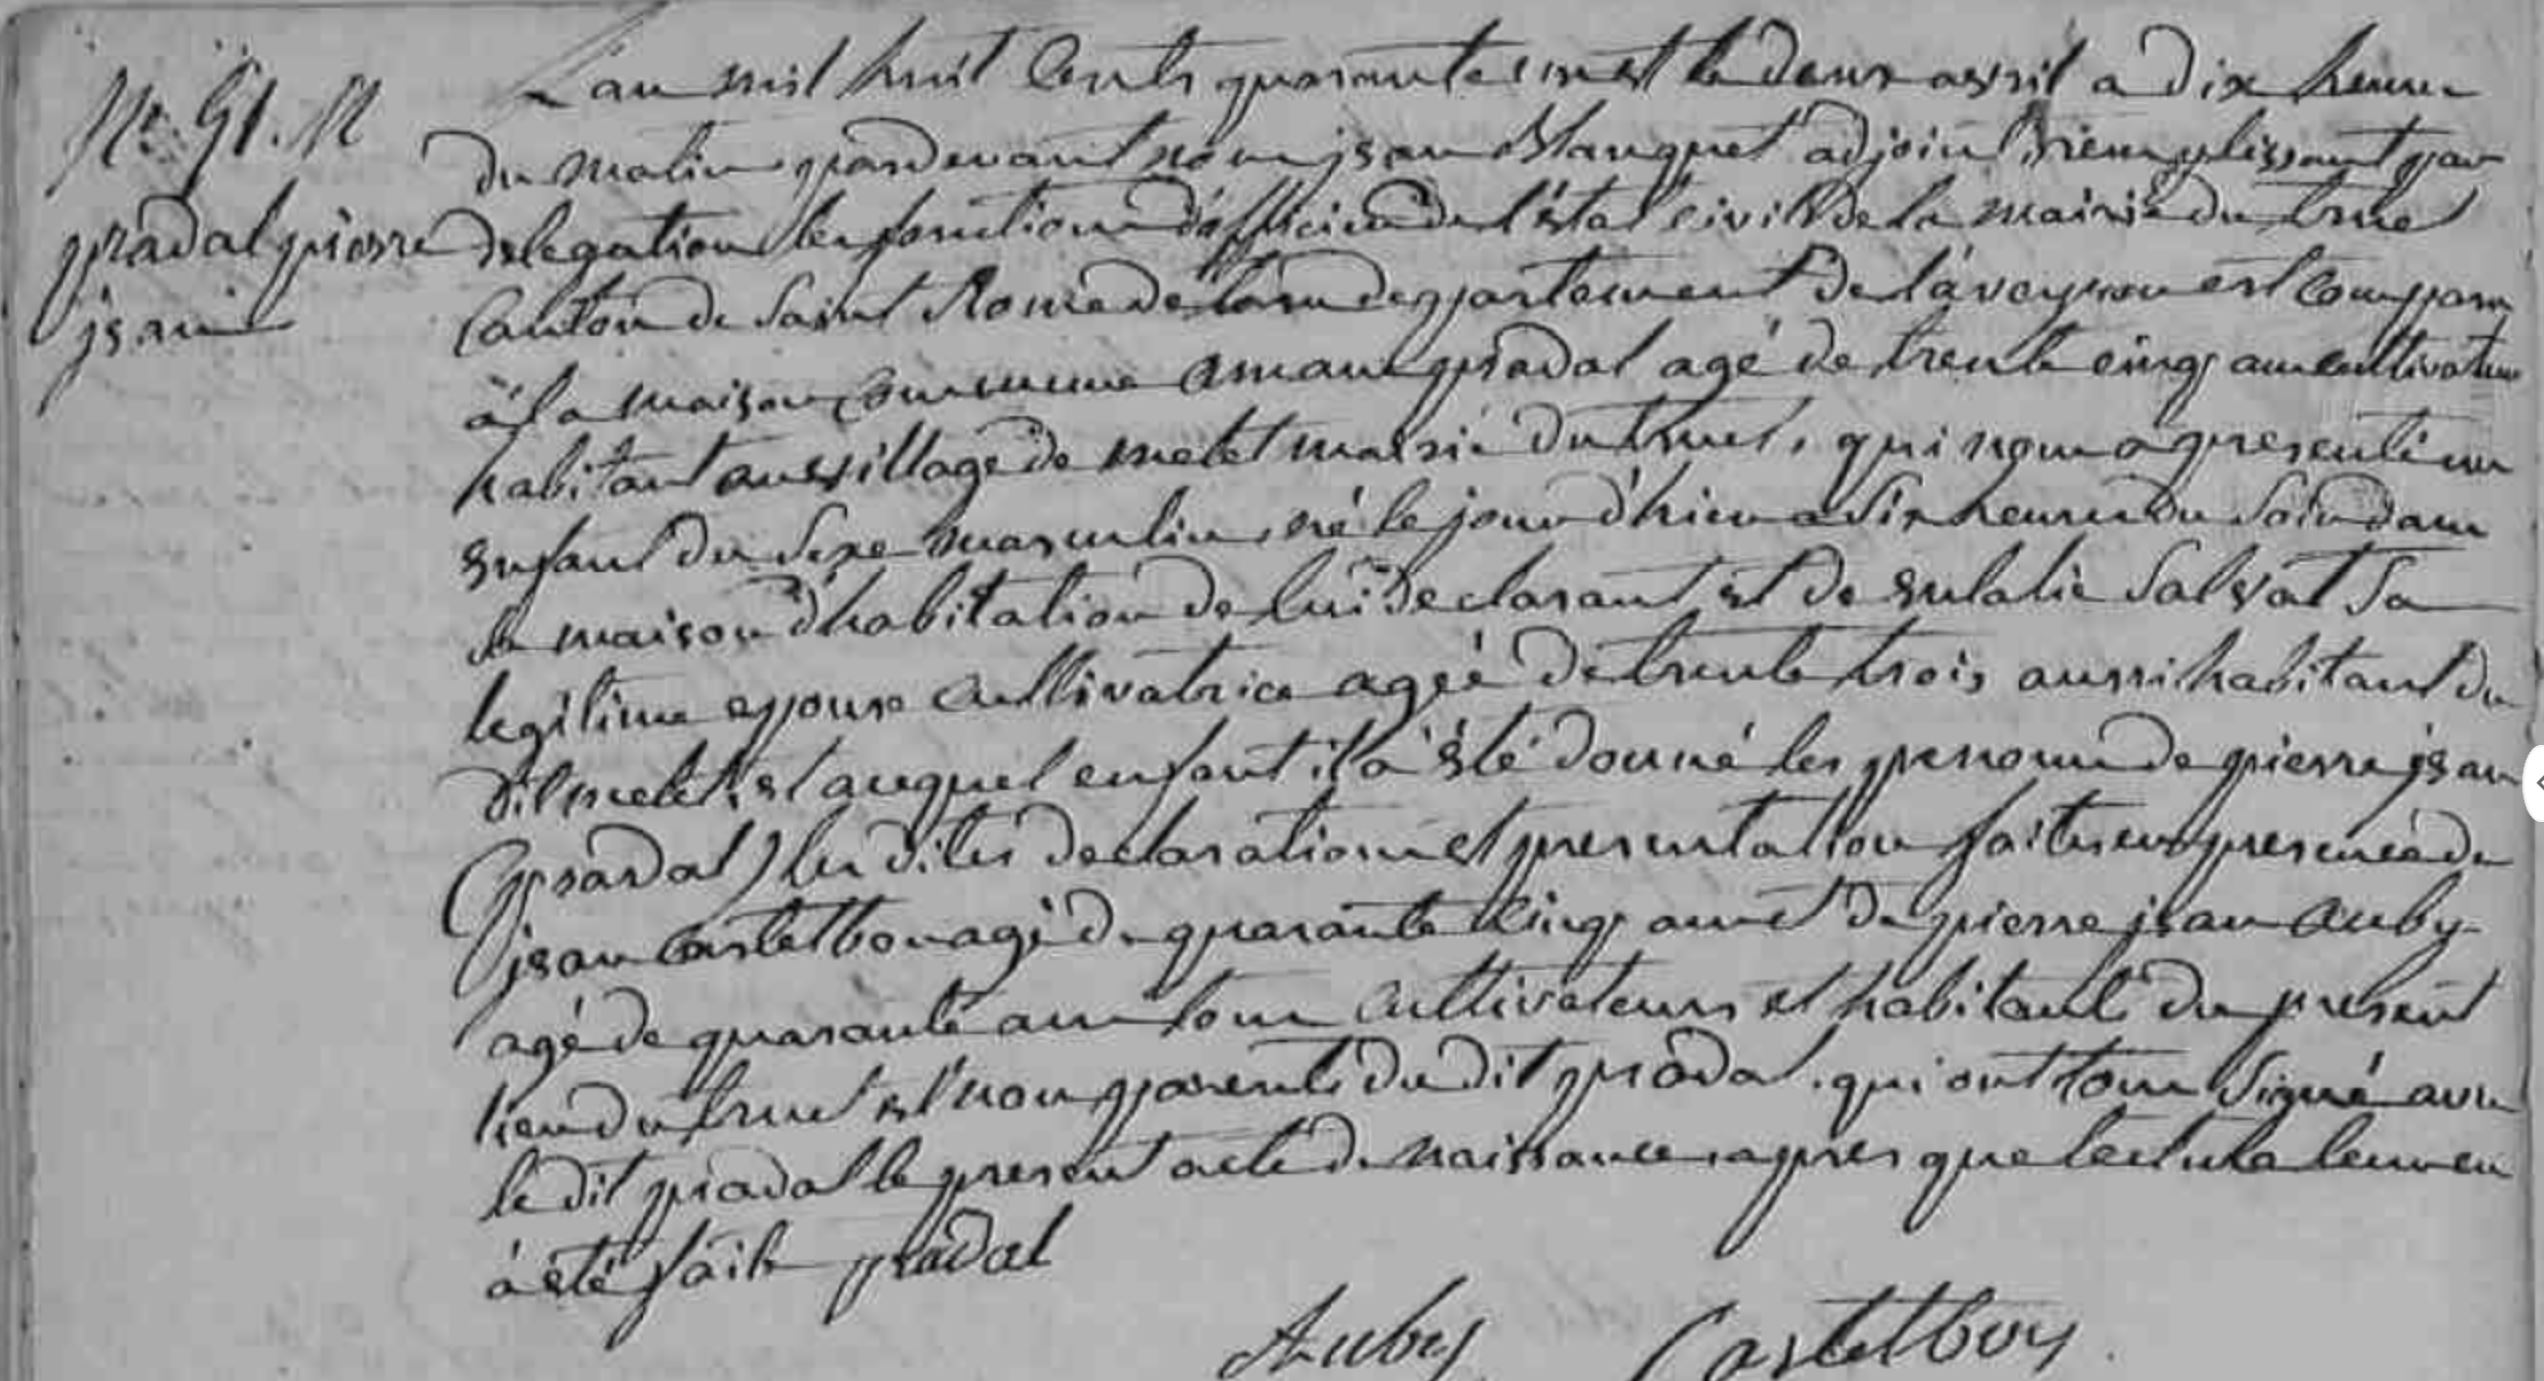 L'an mil huit Cents quarante et le deux avril a dix heures
pradal pierre
jean
du matin pardevant nous jean Blanquet adjoint remplissant par
delegation les fonctions d'officier de l'état civil de la mairie du truel
Canton de Saint Rome de tarn departement de l'aveyron est Comparu
a la maison Commune amans pradal agé de trente cinq ans cultivateur
habitant au village de melet mairie du truel, qui nous a presenté un
enfant du sexe masculin, né le jour d'hier a six heures du soir dans
la maison d'habitation de lui declarant et de eulalie Salvat Sa
legitime epouse Cultivatrice agée de trente trois aussi habitant du
dit melet, et auquel enfant il a été donné les prenoms de pierre jean
(pradal) les dites declaration et presentation faites en presence de
jean Castelbou agé de quarante Cinq ans et de pierre jean Auby
agé de quarante ans tous Cultivateurs et habitants du present
lieu du truel et non parents du dit pradal, qui ont tous Signé avec
le dit pradal le present acte de naissance apres que lecture leur en
a été faite pradal
Auby Castelbou